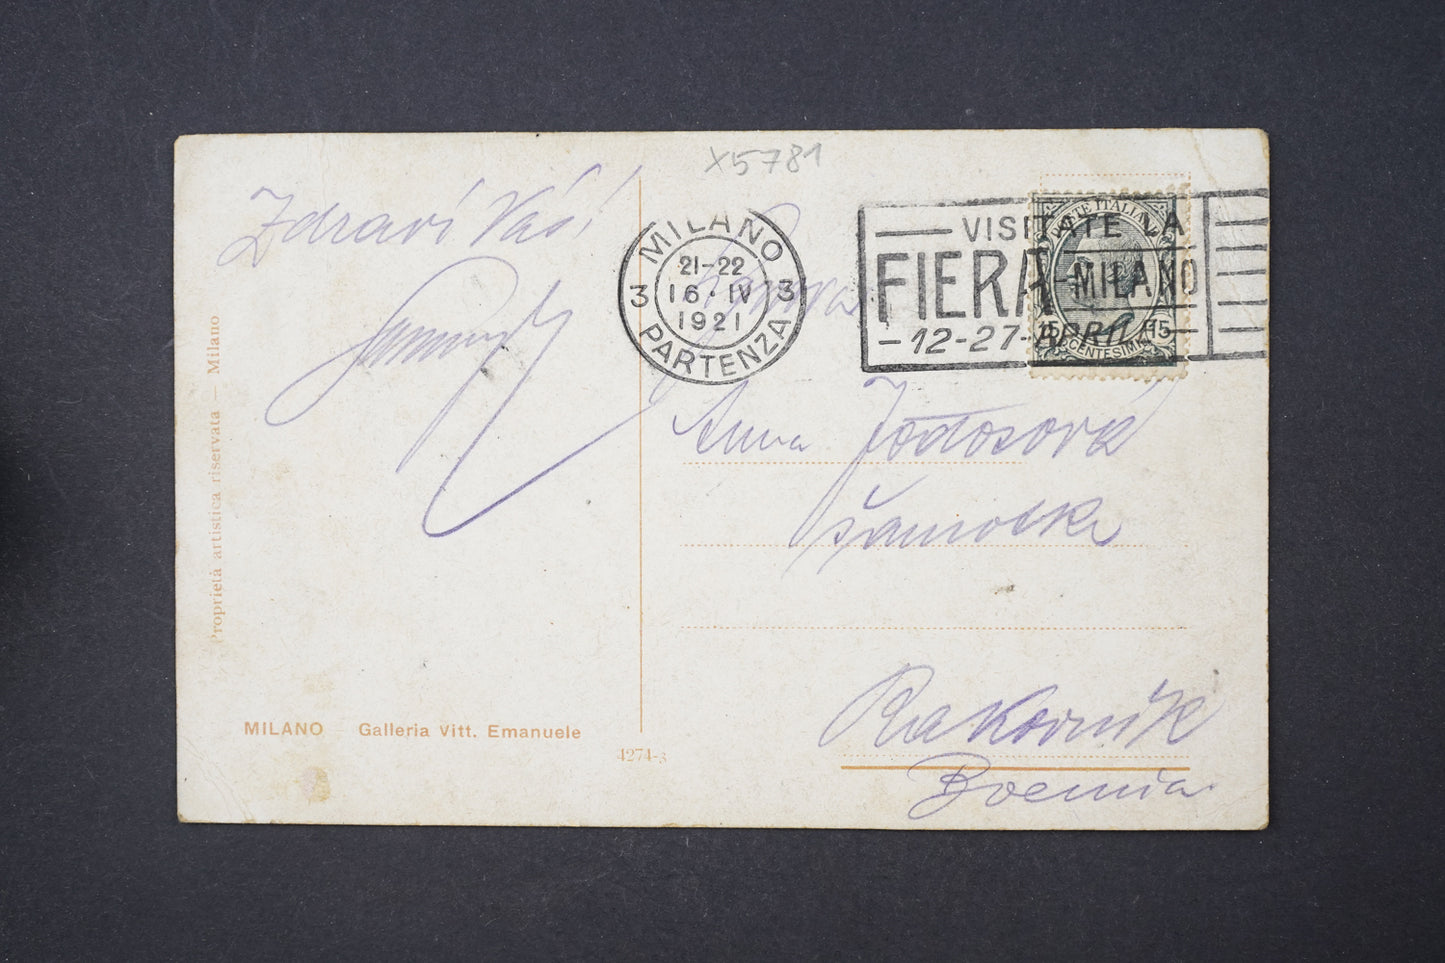 X5781
Zdraví Vás!
MILANO
21-22
3 16·IV 3
1921
PARTENZA
VISITATE LA
FIERA-MILANO
-12-27-APRILE-
POSTE ITALIANE
15 15
CENTESIMI
Anna
Rakovník
Boemia
Proprietà artistica riservata — Milano
MILANO – Galleria Vitt. Emanuele
4274-3